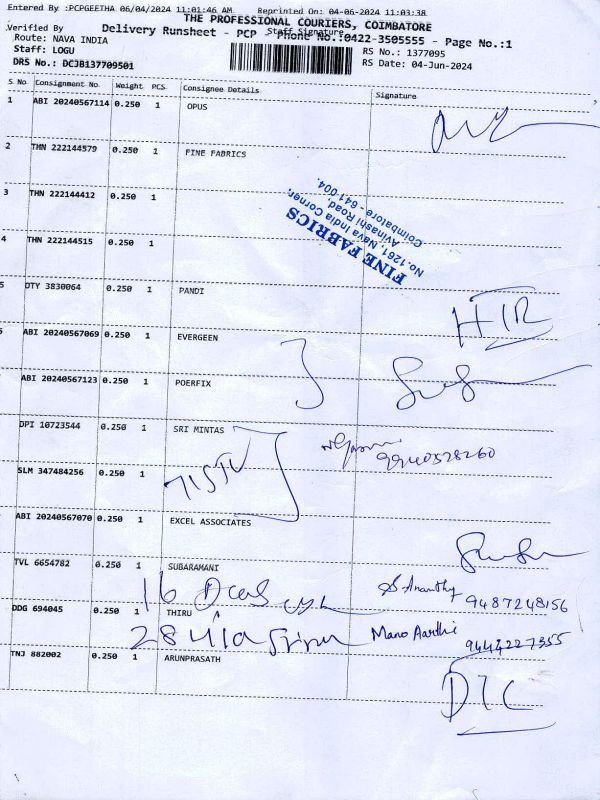 Entered By :PCPGEETHA 06/04/2024 11:01:46 AM Reprinted On: 04-06-2024 11:03:38
THE PROFESSIONAL COURIERS, COIMBATORE
Verified By Delivery Runsheet - PCP Staff Signature Phone No.:0422-3505555 - Page No.:1
Route: NAVA INDIA RS No.: 1377095
Staff: LOGU RS Date: 04-Jun-2024
DRS No.: DCJB137709501
S.No. Consignment No. Weight PCS Consignee Details Signature
1 ABI 20240567114 0.250 1 OPUS
2 THN 222144579 0.250 1 FINE FABRICS
3 THN 222144412 0.250 1
4 THN 222144515 0.250 1
FINE FABRICS
No.1261, Nava India Corner,
Avinashi Road,
Coimbatore - 641 004.
5 DTY 3830064 0.250 1 PANDI
ABI 20240567069 0.250 1 EVERGEEN
ABI 20240567123 0.250 1 POERFIX
DPI 10723544 0.250 1 SRI MINTAS
9940528260
SLM 347484256 0.250 1
ABI 20240567070 0.250 1 EXCEL ASSOCIATES
TVL 6654782 0.250 1 SUBARAMANI
16 S Ananthy 9487248156
DDG 694045 0.250 1 THIRU
28 Mano Aarthi 9444227355
TNJ 882002 0.250 1 ARUNPRASATH
DTC